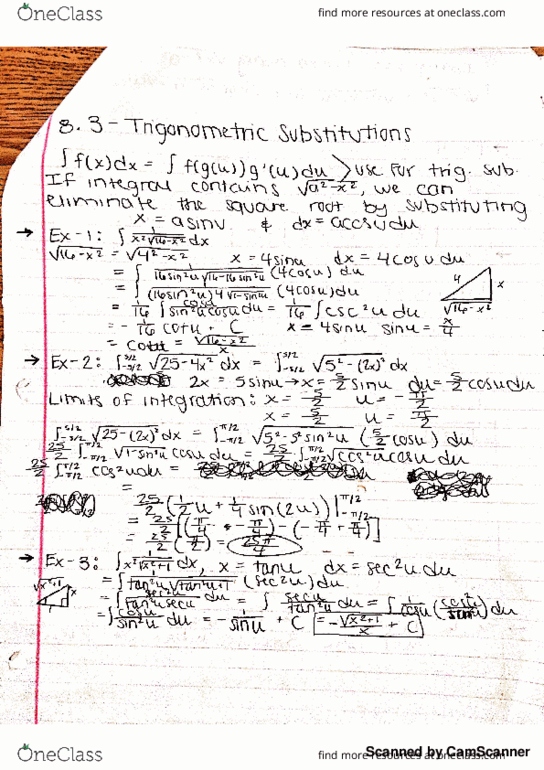 OneClass
find more resources at oneclass.com
8.3 - Trigonometric Substitutions
∫f(x)dx = ∫f(g(u))g'(u)du > use for trig. sub.
If integral contains √a²-x², we can
eliminate the square root by substituting
x = a sinu & dx = a cosu du
→ Ex-1: ∫ 1/(x²√16-x²) dx
√16-x² = √4²-x² x = 4sinu dx = 4cosu du
= ∫ 1/(16sin²u √16-16sin²u) (4cosu) du
= ∫ 1/((16sin²u) 4√1-sin²u) (4cosu) du
4 x √16-x²
= 1/16 ∫ cosu/(sin²u cosu) du = 1/16 ∫csc²u du
= -1/16 cotu + C x = 4sinu sinu = x/4
= cotu = √16-x²/x
→ Ex-2: ∫_-5/2^5/2 √25-4x² dx = ∫_-5/2^5/2 √5²-(2x)² dx
2x = 5sinu → x = 5/2 sinu du = 5/2 cosu du
Limits of integration: x = -5/2 u = -π/2
x = 5/2 u = π/2
∫_-5/2^5/2 √25-(2x)² dx = ∫_-π/2^π/2 √5²-5²sin²u (5/2 cosu) du
25/2 ∫_-π/2^π/2 √1-sin²u cosu du = 25/2 ∫_-π/2^π/2 √cos²u cosu du
25/2 ∫_-π/2^π/2 cos²u du =
=
25/2 (1/2 u + 1/4 sin(2u)) |_-π/2^π/2
= 25/2 [(π/4 - -π/4) - (-π/4 + π/4)]
= 25/2 (π/2) = 25π/4
→ Ex-3: ∫ 1/(x²√x²+1) dx, x = tanu dx = sec²u du
√x²+1 x 1
= ∫ 1/(tan²u √tan²u+1) (sec²u) du
= ∫ sec²u/(tan²u secu) du = ∫ secu/tan²u du = ∫ 1/cosu (cos²u/sin²u) du
= ∫ cosu/sin²u du = -1/sinu + C = -√x²+1/x + C
OneClass
find more resources at oneclass.com
Scanned by CamScanner